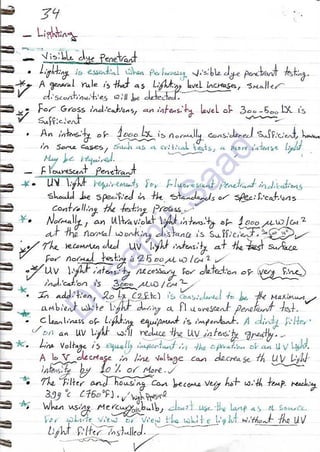 34
- Lighting
- Visible dye Penetrant
• Lighting is essential when performing visible dye penetrant testing.
• A general rule is that as Lighting level increases, smaller
discontinuities will be detected.
• For Gross indications, an intensity level of 300-500 LX is
Sufficient
• An intensity of 1000 LX is normally considered Sufficient, however
in some cases, such as a critical tests, a more intense light
May be required.
- Fluorescent Penetrant
• UV light requirements for fluorescent penetrant indications
should be specified in the standards or specifications
controlling the testing process.
• Normally, an Ultraviolet light intensity of 1000 µW/cm²
at the normal working distance is Sufficient.
The recommended UV light intensity at the test surface
for normal testing is 2500 µW/cm²
• UV light intensity necessary for detection of very fine
indication is 3000 µW/cm²
• In addition, 20 LX (2 ftc) is considered to be the maximum
ambient white light during a fluorescent penetrant test.
• Cleanliness of Lighting equipment is important. A dirty filter
on an UV light will reduce the UV intensity greatly.
• Line Voltage is equally important in the operation of an UV light.
A 10 V decrease in line voltage can decrease the UV Light
intensity by 10 % or more.
• The filter and housing can become very hot with temp. reaching
399 °C (750 °F).
• When using Mercury bulb, don't use the lamp as a source
for white view or view the white light without the UV
Light filter installed.